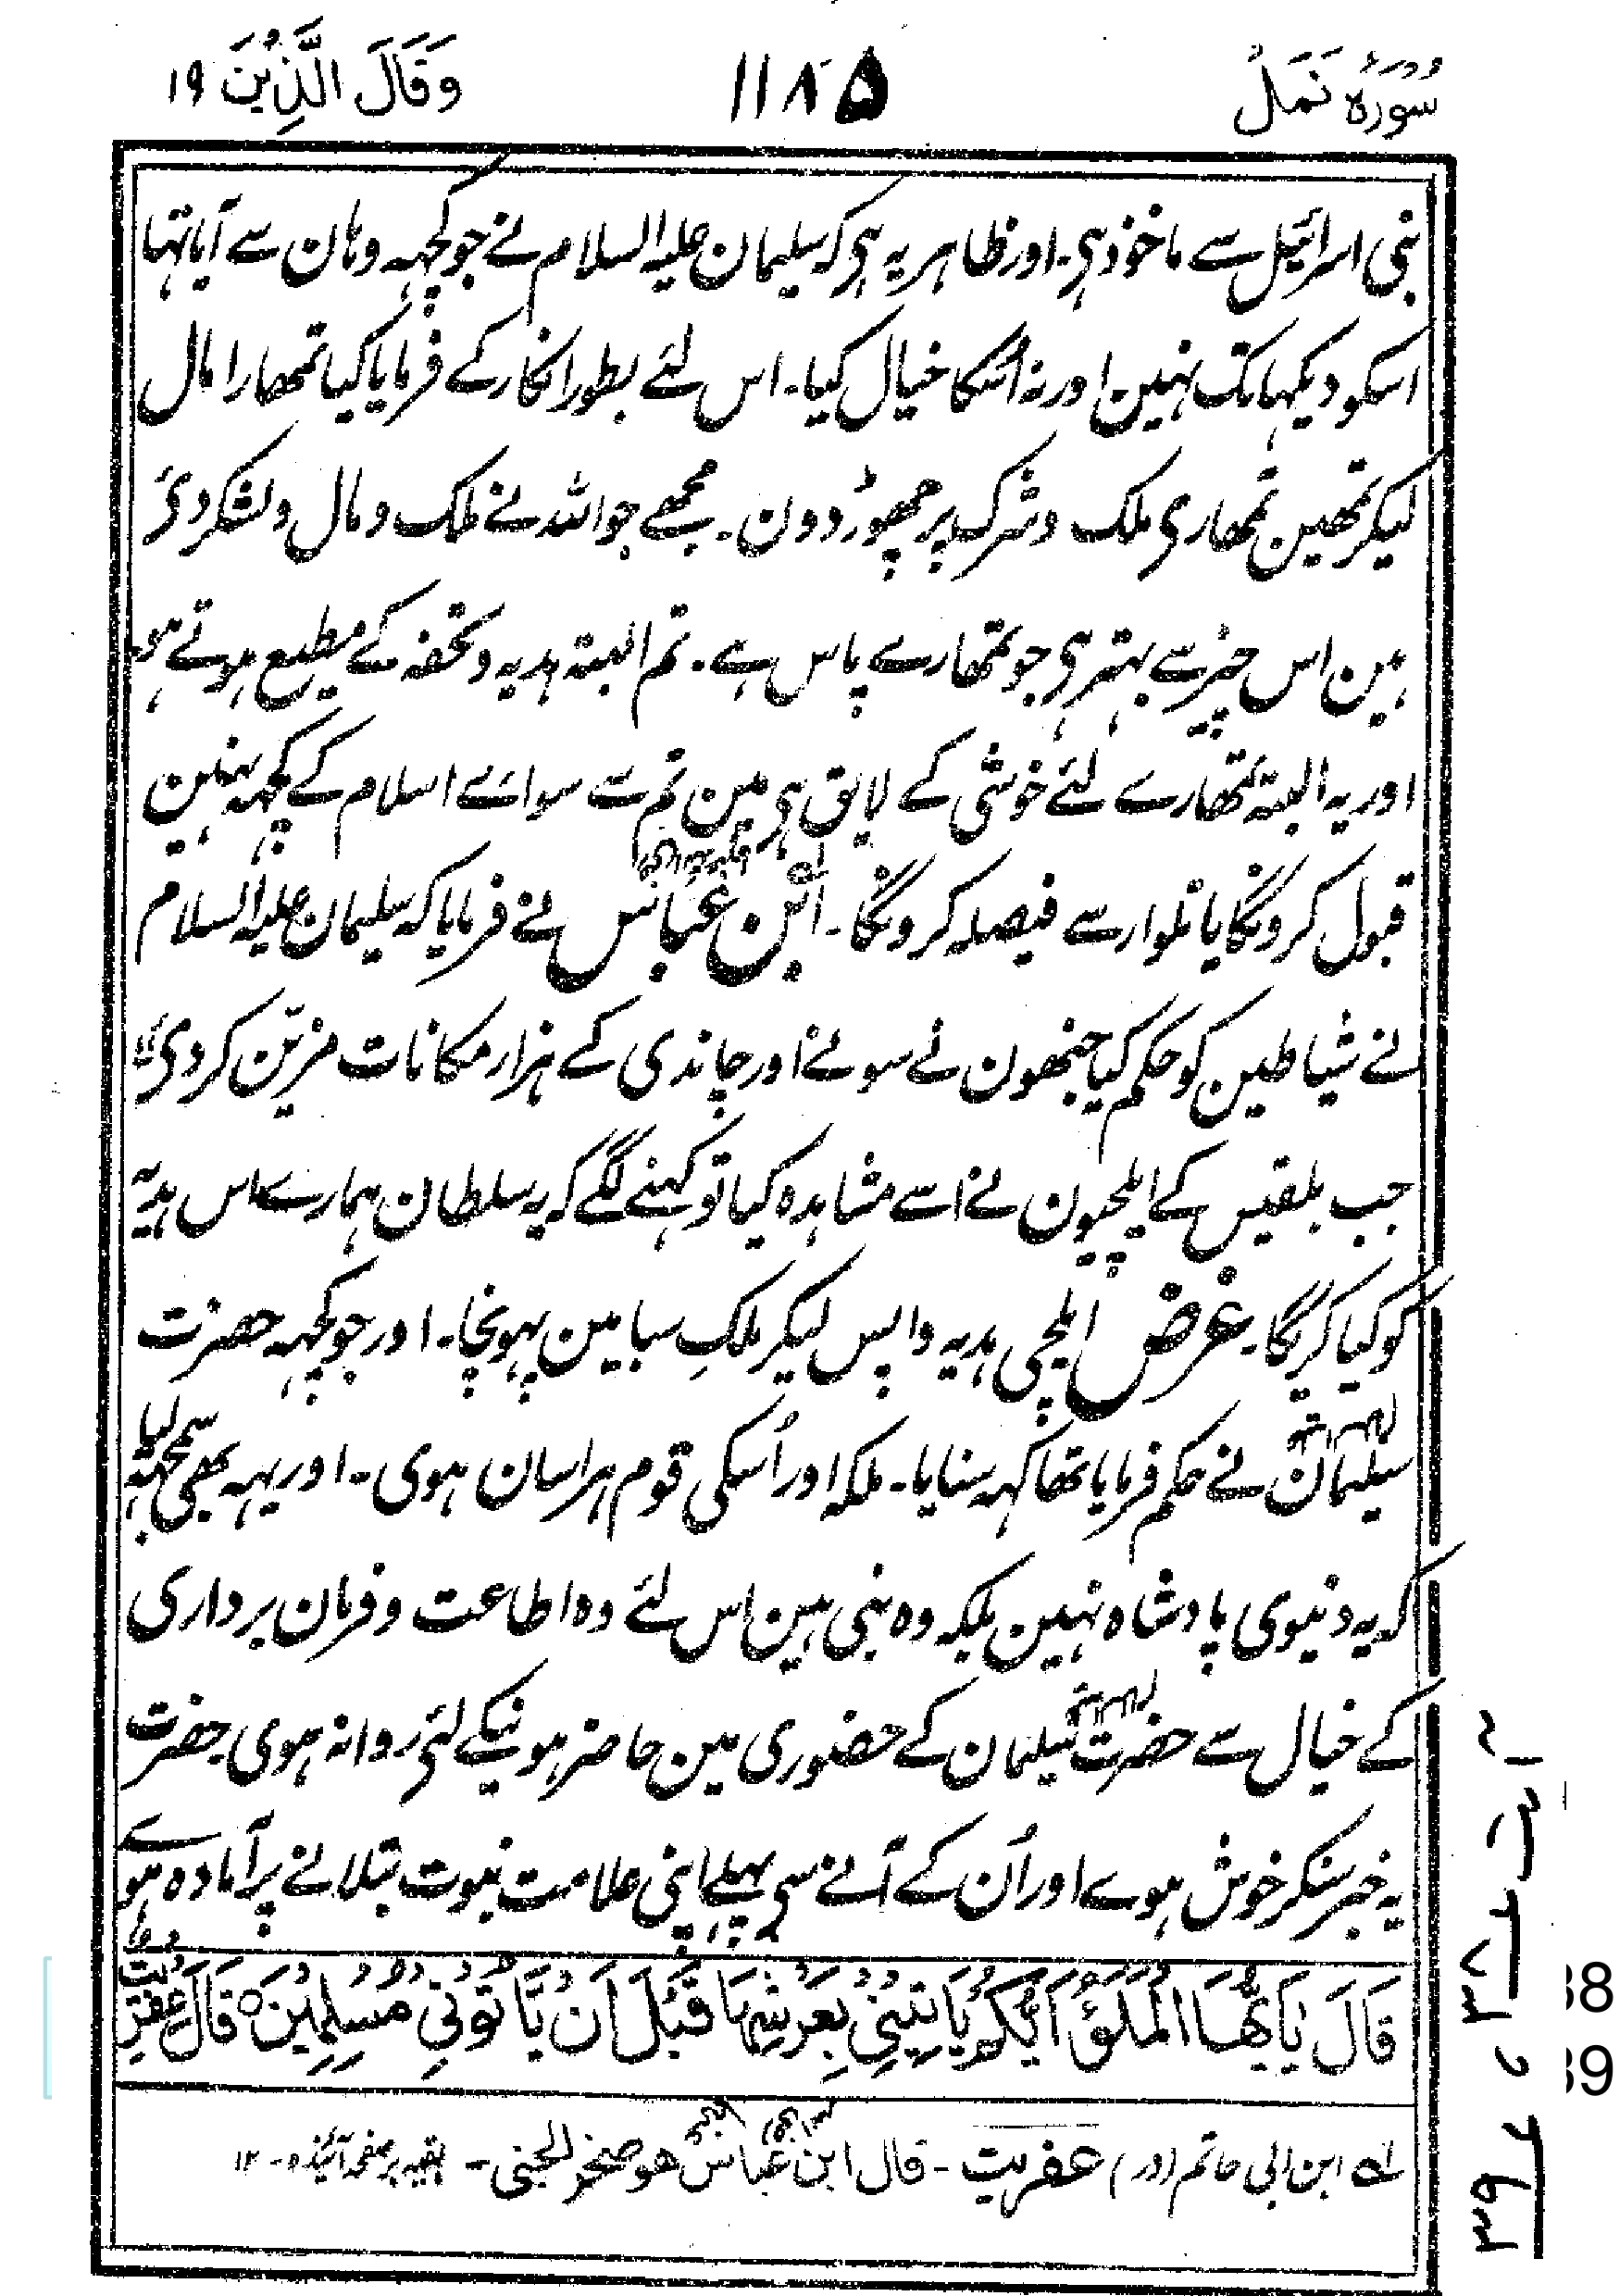 سُورَۃ نَمَل ۱۱۸۵ وَقَالَ الَّذِيْنَ ۱۹
بنی اسرائیل سے ماخوذ ہی۔ اور ظاہر یہ ہی کہ سلیمان علیہ السلام نے جو کچہہ وہان سے آیا تہا
اسکو دیکہا تک نہین اور نہ اُسکا خیال کیا۔ اس لئے بطور انکار کے فرمایا کیا تمھارا مال
لیکر تمھین تمھاری ملک و شرک پر چھوڑ دون۔ مجھے جو اللہ نے ملک و مال و لشکر دئ
ہین اس چیز سے بہتر ہی جو تمھارے پاس ہے۔ تم البتہ ہدیہ و تحفہ کے مطیع ہوتے ہو۔
اور یہ البتہ تمھارے لئے خوشی کے لایق ہی مین تم سے سوائے اسلام کے کچہہ نہین
قبول کرونگا یا تلوار سے فیصلہ کرونگا۔ ابن عباس نے فرمایا کہ سلیمان علیہ السلام
نے شیاطین کو حکم کیا جنھون نے سونے اور چاندی کے ہزار مکانات مزیّن کر دی
جب بلقیس کے ایلچیون نے اسے مشاہدہ کیا تو کہنے لگے کہ یہ سلطان ہمارے اس ہدیہ
کو کیا کریگا۔ غرض ایلچی ہدیہ واپس لیکر ملکِ سبا مین پہونچا۔ اور جو کچہہ حضرت
سلیمان نے حکم فرمایا تھا کہہ سنایا۔ ملکہ اور اُسکی قوم ہراسان ہوی۔ اور یہہ بھی سمجہہ لیا
کہ یہ دنیوی پادشاہ نہین بلکہ وہ نبی ہین اس لئے وہ اطاعت و فرمان برداری
کے خیال سے حضرت سلیمان کے حضوری مین حاضر ہونیکے لئی روانہ ہوی۔ حضرت
یہ خبر سنکر خوش ہوے اور اُن کے آنے سی پہلے اپنی علامت نبوت بتلانے پر آمادہ ہوے
قَالَ یٰۤاَیُّهَا الْمَلَؤُا اَیُّكُمْ یَاْتِیْنِیْ بِعَرْشِهَا قَبْلَ اَنْ یَّاْتُوْنِیْ مُسْلِمِیْنَ ○ قَالَ عِفْرِیْتٌ
لہ ابن ابی حاتم (اور) عفریت ۔ قال ابن عباس ھو صخر الجنی ۔ بقیہ بر صفحہ آئندہ ۔ ۱۲
38
39
آیت ۳۸
۳۹